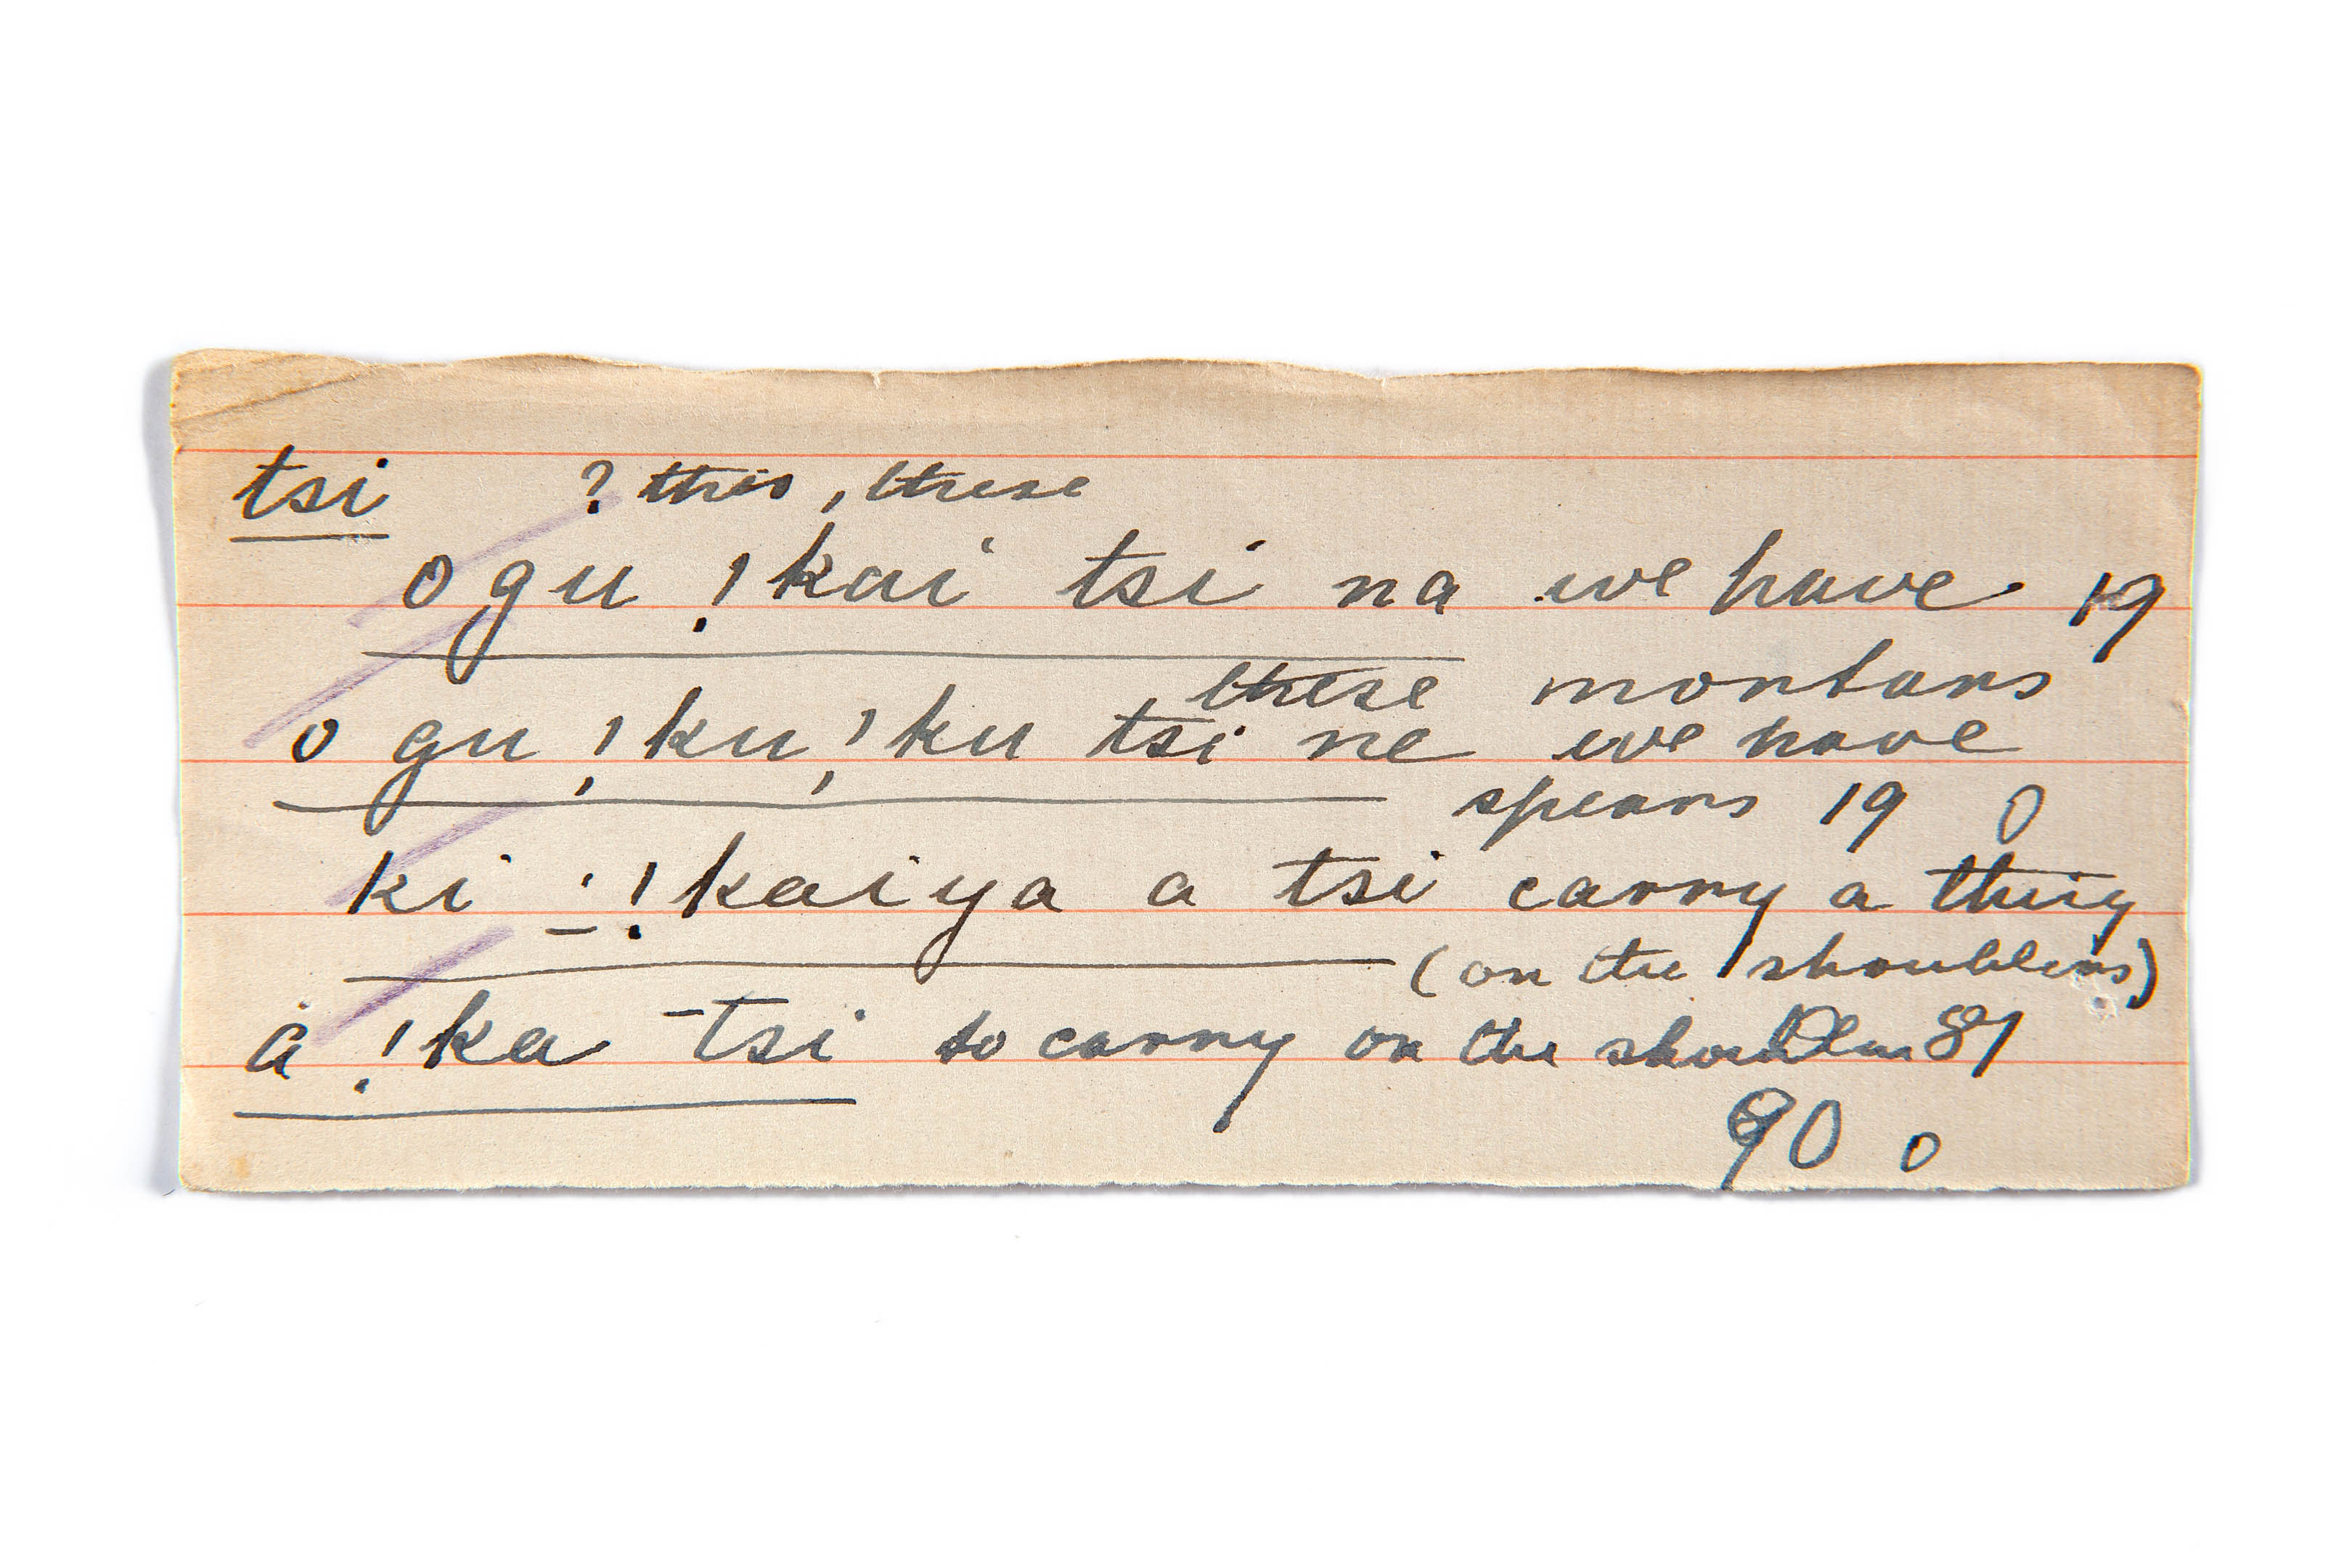 tsi ? this, these
o gu !kai tsi na we have 19
these mortars
o gu !ku !ku tsi ne we have
spears 19 0
ki !kaiya a tsi carry a thing
(on the shoulders)
á !ka tsi to carry on the shoulder 81
90 0